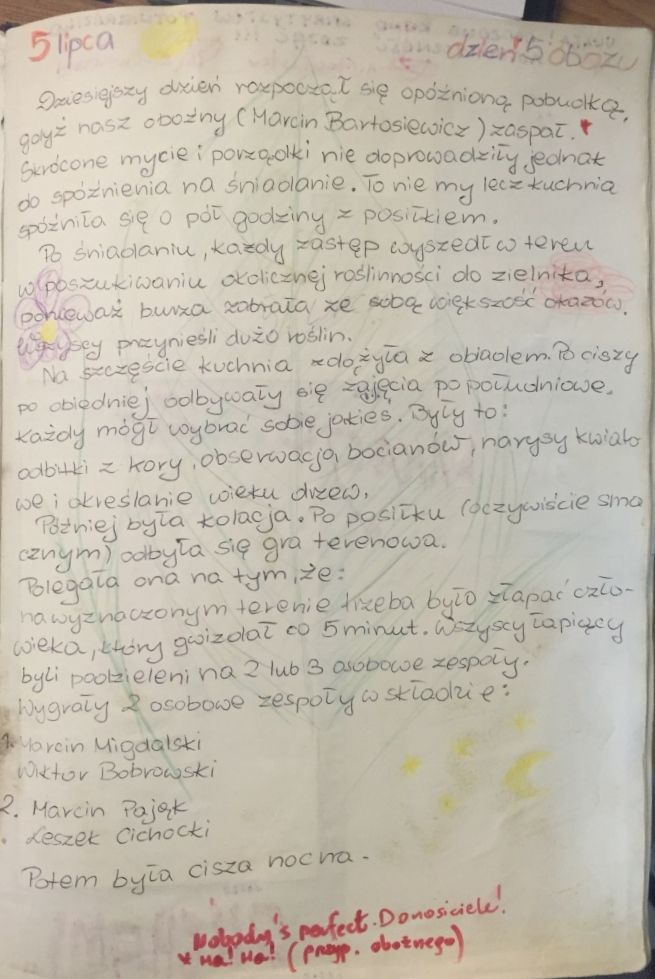 5 lipca
dzień 5 obozu
Dzisiejszy dzień rozpoczął się opóźnioną pobudką,
gdyż nasz oboźny (Marcin Bartosiewicz) zaspał. *
Skrócone mycie i porządki nie doprowadziły jednak
do spóźnienia na śniadanie. To nie my lecz kuchnia
spóźniła się o pół godziny z posiłkiem.
Po śniadaniu, każdy zastęp wyszedł w teren
w poszukiwaniu okolicznej roślinności do zielnika,
ponieważ burza zabrała ze sobą większość okazów.
Wszyscy przynieśli dużo roślin.
Na szczęście kuchnia zdążyła z obiadem. Po ciszy
po obiedniej odbywały się zajęcia popołudniowe.
Każdy mógł wybrać sobie jakieś. Były to:
odbitki z kory, obserwacja bocianów, narysy kwiato
we i określanie wieku drzew.
Później była kolacja. Po posiłku (oczywiście sma
cznym) odbyła się gra terenowa.
Polegała ona na tym, że:
na wyznaczonym terenie trzeba było złapać czło-
wieka, który gwizdał co 5 minut. Wszyscy łapiący
byli podzieleni na 2 lub 3 osobowe zespoły.
Wygrały 2 osobowe zespoły w składzie:
1. Marcin Migdalski
Wiktor Bobrowski
2. Marcin Pająk
Leszek Cichocki
Potem była cisza nocna.
Nobody's perfect. Donosiciele!
* Ha! Ha! (przyp. oboźnego)